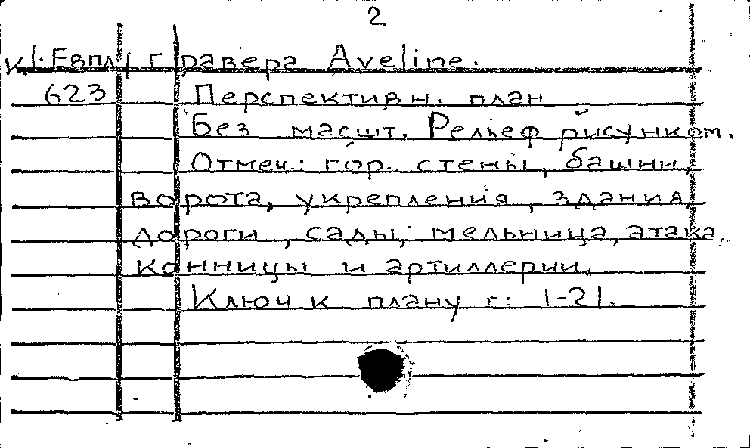 2
К1.Евпл/ гравера Aveline.
623 Перспективн. план
Без масшт. Рельеф рисунком.
Отмеч: гор. стены, башни,
ворота, укрепления, здания,
дороги, сады, мельница, атака
конницы и артиллерии.
Ключ к плану г: 1-21.